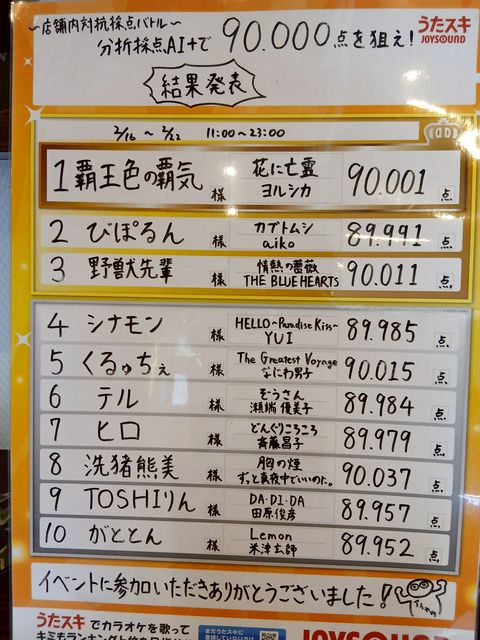 〜店舗内対抗採点バトル〜
分析採点AI+で 90.000点を狙え!
うたスキ
JOYSOUND
結果発表
2/16 〜 2/22 11:00〜23:00
1 覇王色の覇気 様 花に亡霊 ヨルシカ 90.001 点
2 びぽるん 様 カブトムシ aiko 89.991 点
3 野獣犬先輩 様 情熱の薔薇 THE BLUE HEARTS 90.011 点
4 シナモン 様 HELLO〜Paradise Kiss〜 YUI 89.985 点
5 くるゅちぇ 様 The Greatest Voyage なにわ男子 90.015 点
6 テル 様 ぞうさん 瀬端優美子 89.984 点
7 ヒロ 様 どんぐりころころ 斉藤昌子 89.979 点
8 洗猪熊美 様 胸の煙 ずっと真夜中でいいのに。 90.037 点
9 TOSHIりん 様 DA・DI・DA 田原俊彦 89.957 点
10 がととん 様 Lemon 米津玄師 89.952 点
イベントに参加いただきありがとうございました!
うたスキ でカラオケを歌って
まだうたスキに
JOYSOUND